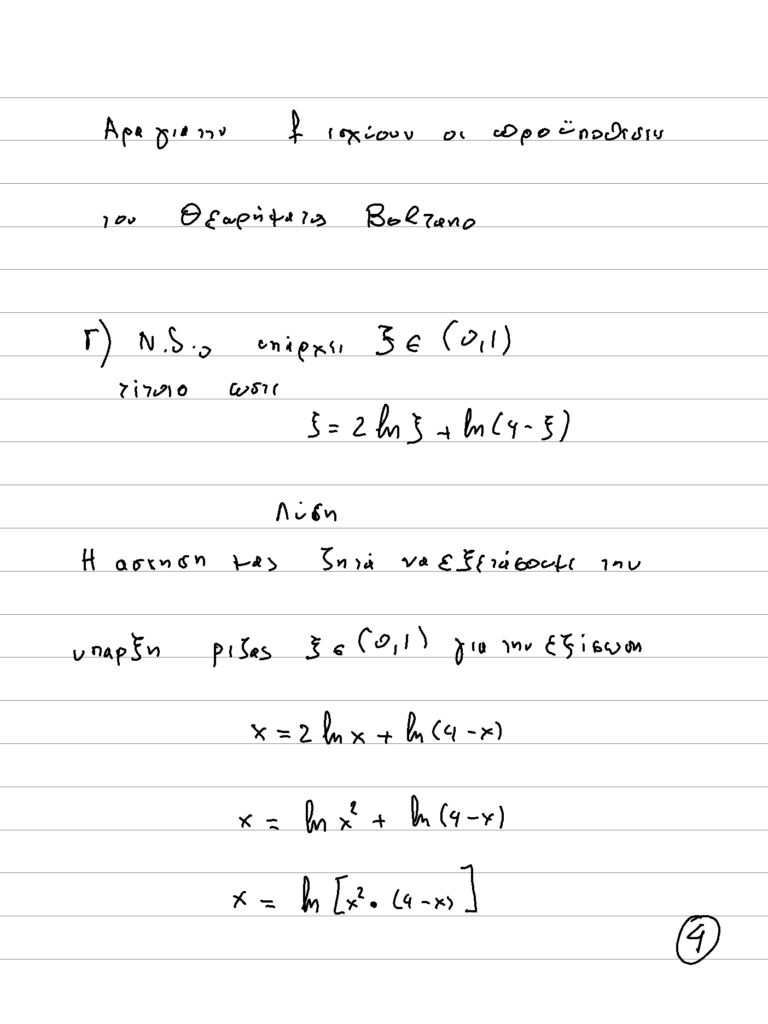 Αρα για την f ισχύουν οι προϋποθεσεις
του Θεωρήματος Bolzano
Γ) Ν.δ.ο υπάρχει ξ ∈ (0,1)
τέτοιο ωστε
ξ = 2 ln ξ + ln(4-ξ)
Λύση
Η ασκηση μας ζητά να εξετάσουμε την
υπαρξη ριζας ξ ∈ (0,1) για την εξίσωση
x = 2 ln x + ln(4-x)
x = ln x² + ln(4-x)
x = ln [x² · (4-x)]
4